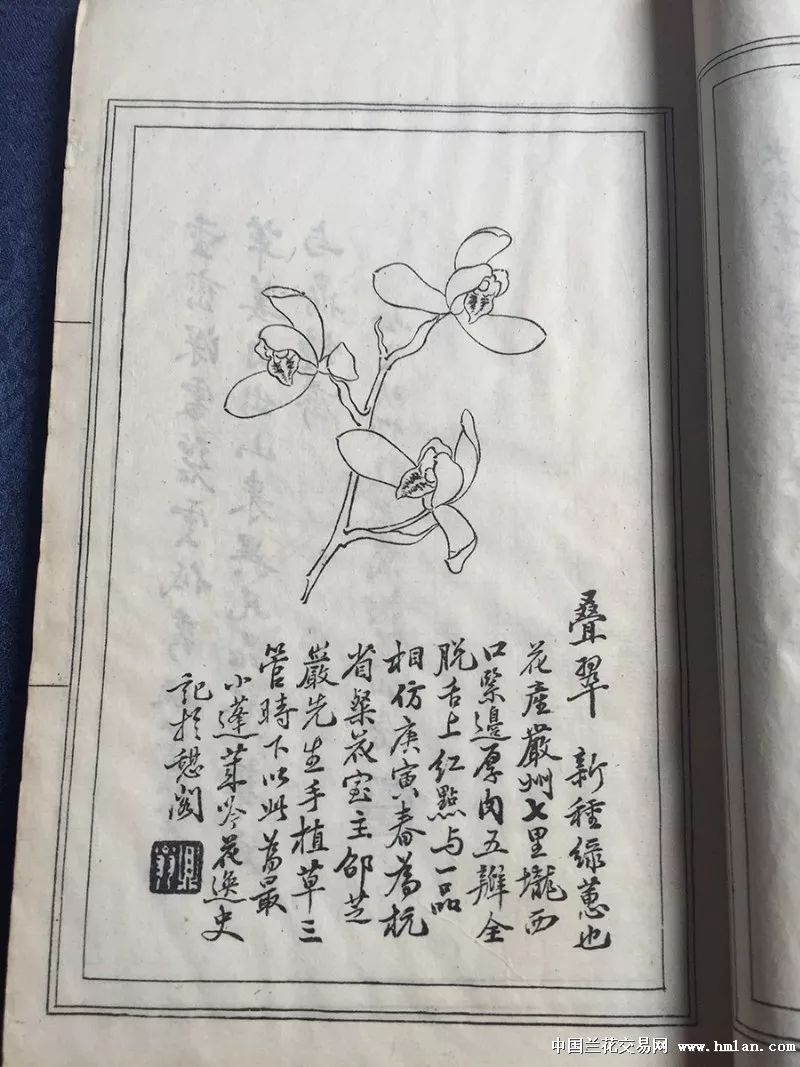 叠翠 新種綠蕙也
花產嚴州七里壠西
口緊邊厚肉五瓣全
脱舌上紅點与一品
相仿庚寅春為杭
省粲花室主邰芝
嚴先生手植草三
管時下以此為最
小蓬萊吟花逸史
記於憩閣
中国兰花交易网 www.hmlan.com